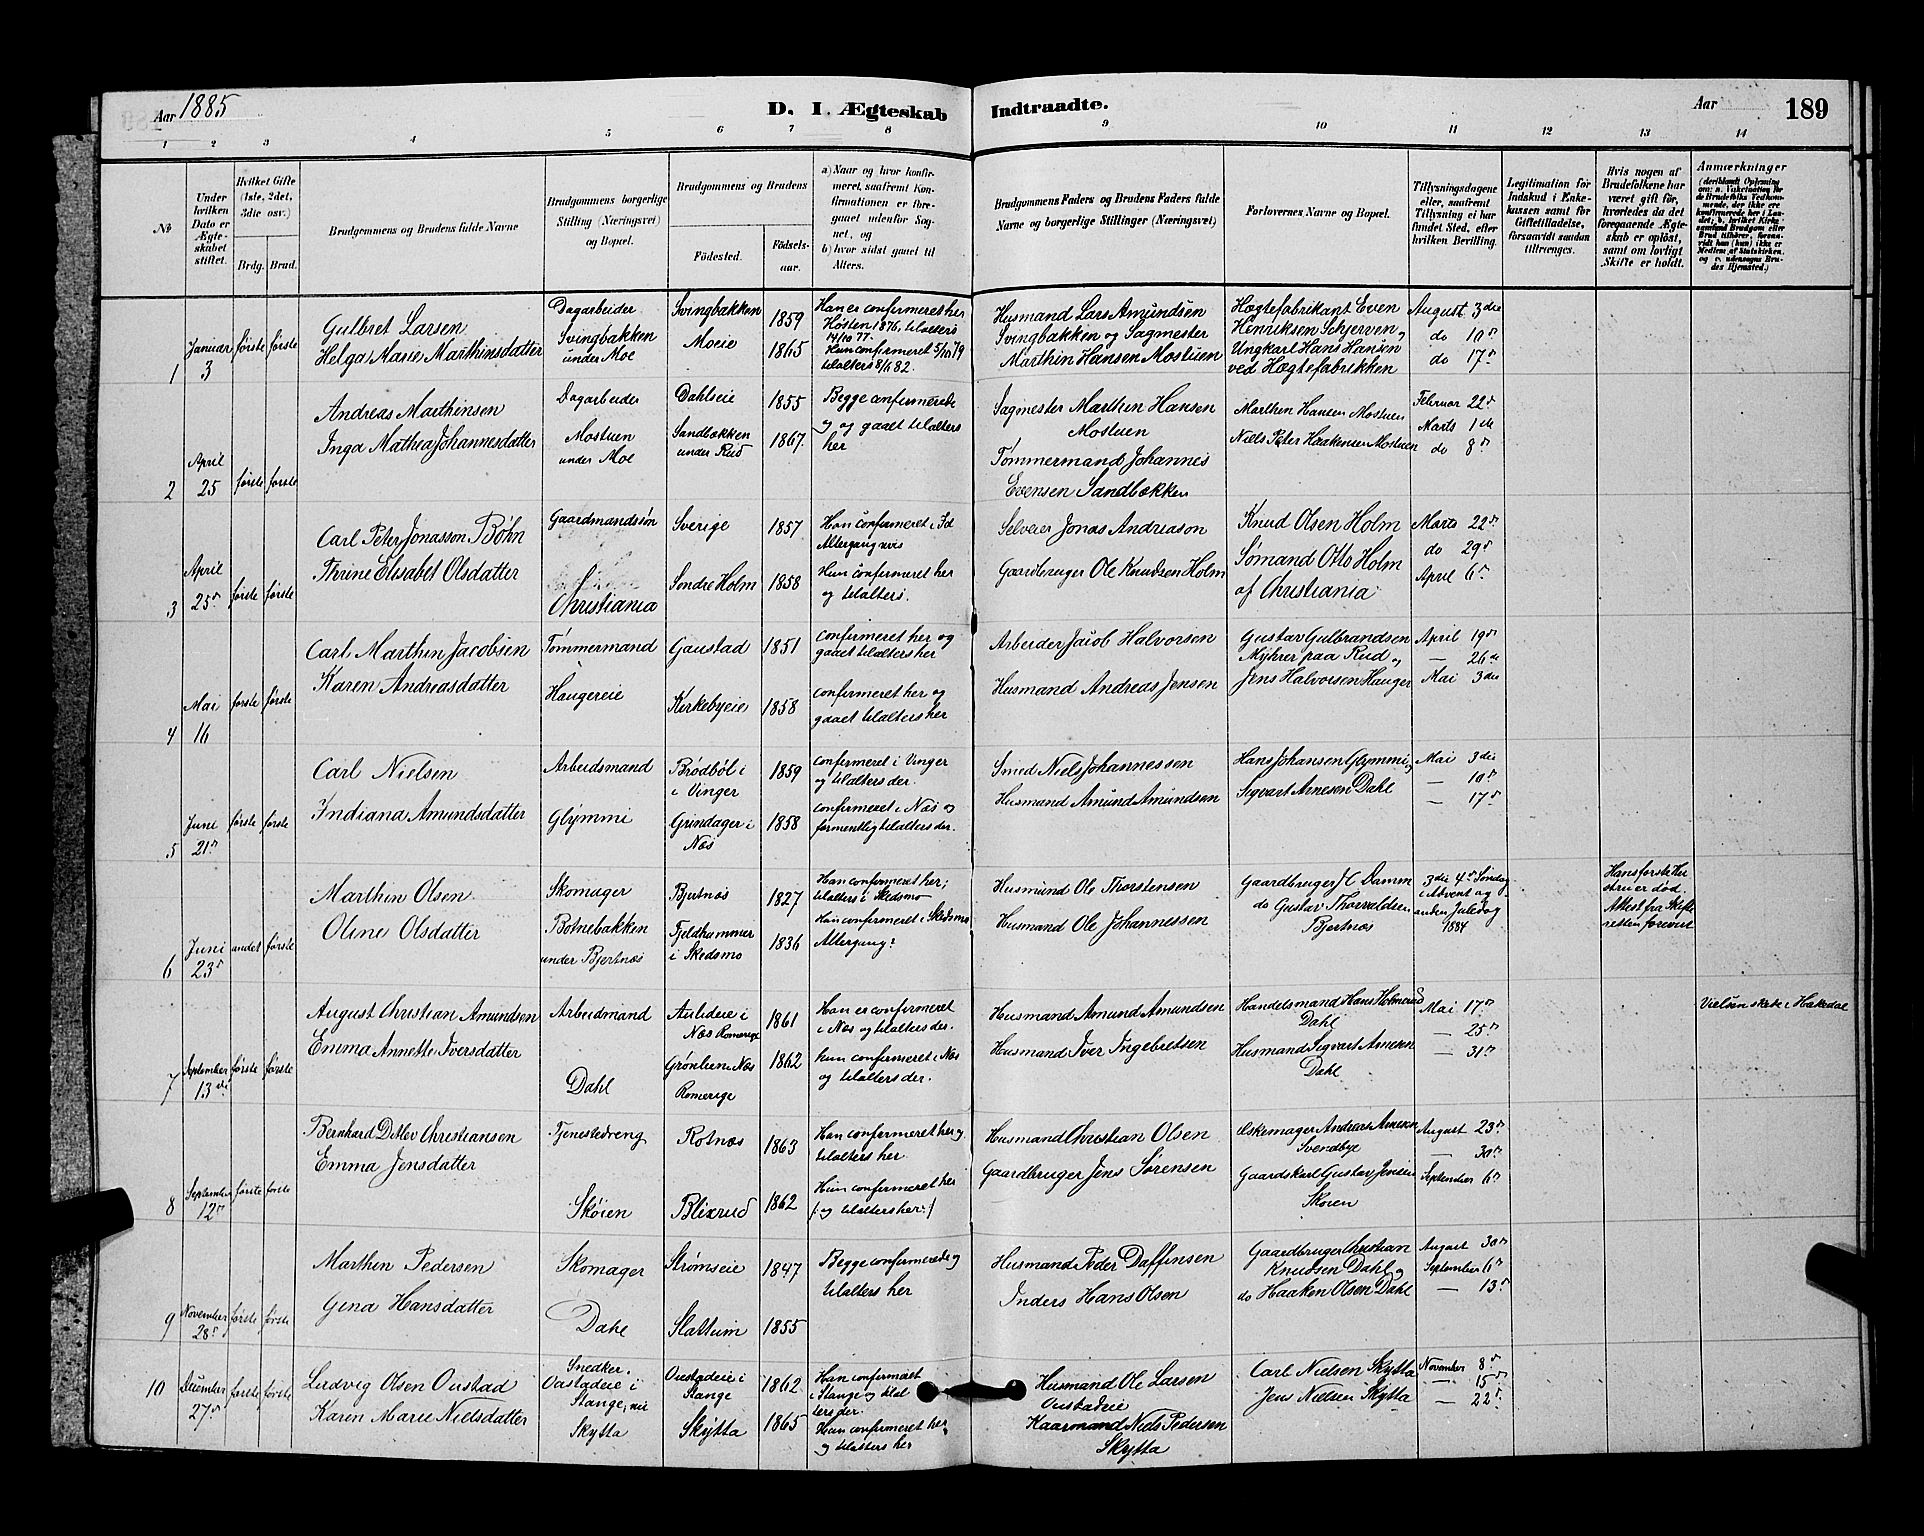 Aar 1885
D. I. Ægteskab Indtraadte.
Aar
189
1 2 3 4 5 6 7 8 9 10 11 12 13 14
№
Under hvilken Dato er Ægteskabet stiftet.
Hvilket Gifte (1ste, 2det, 3die osv.)
Brdg. Brud.
Brudgommens og Brudens fulde Navne
Brudgommens borgerlige Stilling (Næringsvei) og Bopæl.
Brudgommens og Brudens
Fødested.
Fødselsaar.
a) Naar og hvor konfirmeret, saafremt Konfirmationen er foregaaet udenfor Sognet, og
b) hvor sidst gaaet til Alters.
Brudgommens Faders og Brudens Faders fulde Navne og borgerlige Stillinger (Næringsvei)
Forlovernes Navne og Bopæl.
Tillysningsdagene eller, saafremt Tillysning ei har fundet Sted, efter hvilken Bevilling.
Legitimation for Indskud i Enkekassen samt for Giftetilladelse, forsaavidt saadan tiltrænges.
Hvis nogen af Brudefolkene har været gift før, hvorledes da det foregaaende Ægteskab er opløst, samt om lovligt Skifte er holdt.
Anmærkninger
1
Januar 3
første første
Gulbret Larsen
Helga Marie Marthinsdatter
Dagarbeider
Svingbakken
under Moe
Svingbakken
Moeie
1859
1865
Han er confirmeret her
Høsten 1876, tilalters
14/10 77.
Hun confirmeret 5/10 79
tilalters 8/6 82.
Husmand Lars Amundsen
Svingbakken og Sagmester
Marthin Hansen Mostuen
Hægtefabrikant Even
Henriksen Schjerven,
Ungkarl Hans Hansen
ved Hægtefabrikken
August 3die
do 10de
do 17de
2
April 25
første første
Andreas Marthinsen
Inga Mathea Johannesdatter
Dagarbeider
Mostuen
under Moe
Dahlseie
Sandbækken
under Rud
1855
1867.
Begge confirmerede
og og gaaet tilalters
her
Sagmester Marthin Hansen
Mostuen
Tømmermand Johannes
Evensen Sandbækken
Marthen Hansen Mostuen
Niels Peter Haakensen Mostuen
Februar 22de
Marts 1ste
do 8de
3
April 25de
første første
Carl Peter Jonasson Bøhn
Thrine Elisabet Olsdatter
Gaardmandssøn
Christiania
Sverige
Søndre Holm
1857
1858
Han confirmeret i
Altergang
Hun confirmeret her
og tilalters.
Selveier Jonas Andreason
Gaardbruger Ole Knudsen Holm
Knud Olsen Holm
Sømand Otto Holm
af Christiania
Marts 22de
do 29de
April 6de
4
Mai 16
første første
Carl Marthin Jacobsen
Karen Andreasdatter
Tømmermand
Haugereie
Gaustad
Kirkebyeie
1851
1858
confirmeret her og
gaaet tilalters her
confirmeret her og
gaaet tilalters her
Arbeider Jacob Halvorsen
Husmand Andreas Jensen
Gustav Gulbrandsen
Myhrer paa Rud,
Jens Halvorsen Hauger
April 19de
— 26de
Mai 3die
5
Juni 21de
første første
Carl Nielsen
Indiana Amundsdatter
Arbeidsmand
Glymmi
Brødbøl i
i Vinger
Grindager i
Næs
1859
1858
confirmeret i Vinger
og tilalters der.
confirmeret i Næs og
formentlig tilalters der.
Smed Niels Johannessen
Husmand Amund Amundsen
Hans Johansen Glymmi
Segvart Arnesen Dahl
Mai 3die
— 10de
— 17de
6
Juni 23de
andet første
Marthin Olsen
Oline Olsdatter
Skomager
Botnebakken
under Bjertnæs
Bjertnæs
Fjeldhammer
i Skedsmo
1827
1836
Han confirmeret her;
tilalters i Skedsmo
Hun confirmeret i Skedsmo
Altergang?
Husmand Ole Thorstensen
Husmand Ole Johannessen
Gaardbruger J C Damm
do Gustav Thorvaldsen
Bjertnæs
3die 4de Søndag
i Advent og
anden Juledag
1884
Hans første Hustru er død.
Attest fra Skifteretten forevist
7
September 13de
første første
August Christian Amundsen
Emma Annette Iversdatter
Arbeidmand
Dahl
Aulieeie i
Næs Romerige
Grønlien Næs
Romerige
1861
1862
Han er confirmeret
i Næs og tilalters der.
hun confirmeret i Næs
og tilalters der.
Husmand Amund Amundsen
Husmand Iver Ingebretsen
Handelsmand Hans Holmerud
Dahl
Husmand Segvart Arnesen
Dahl
Mai 17de
— 25de
— 31te
Vielsen skete i Hakedal
8
September 12de
første første
Bernhard Detlev Christiansen
Emma Jensdatter
Tjenestedreng
Skøien
Rotnæs
Blixrud
1863
1862
Han confirmeret her og
tilalters her.
Hun confirmeret her
/: og tilalters her :/
Husmand Christian Olsen
Gaardbruger Jens Sørensen
Æskemager Andreas Arnesen
Svendbye
Gaardskarl Gustav Jensen
Skøien
August 23de
— 30de
September 6te
9
November 28de
første første
Marthin Pedersen
Gina Hansdatter
Skomager
Dahl
Strømseie
Slattum
1847
1855
Begge confirmerede og
tilalters her
Husmand Peder Daffinsen
Inders Hans Olsen
Gaardbruger Christian
Knudsen Dahl,
do Haaken Olsen Dahl
August 30te
September 6te
— 13de
10
December 27de
første første
Ludvig Olsen Oustad
Karen Marie Nielsdatter
Snedker.
Oustadeie i
Stange, nu
Skytta
Oustadeie i
Stange
Skytta
1862
1865
Han confirmeret
i Stange og tilalters der.
Hun confirmeret her,
og tilalters her
Husmand Ole Larsen
Oustadeie
Kaarmand Niels Pedersen
Skytta
Carl Nielsen Skytta
Jens Nielsen Skytta
November 8de
— 15de
— 22de